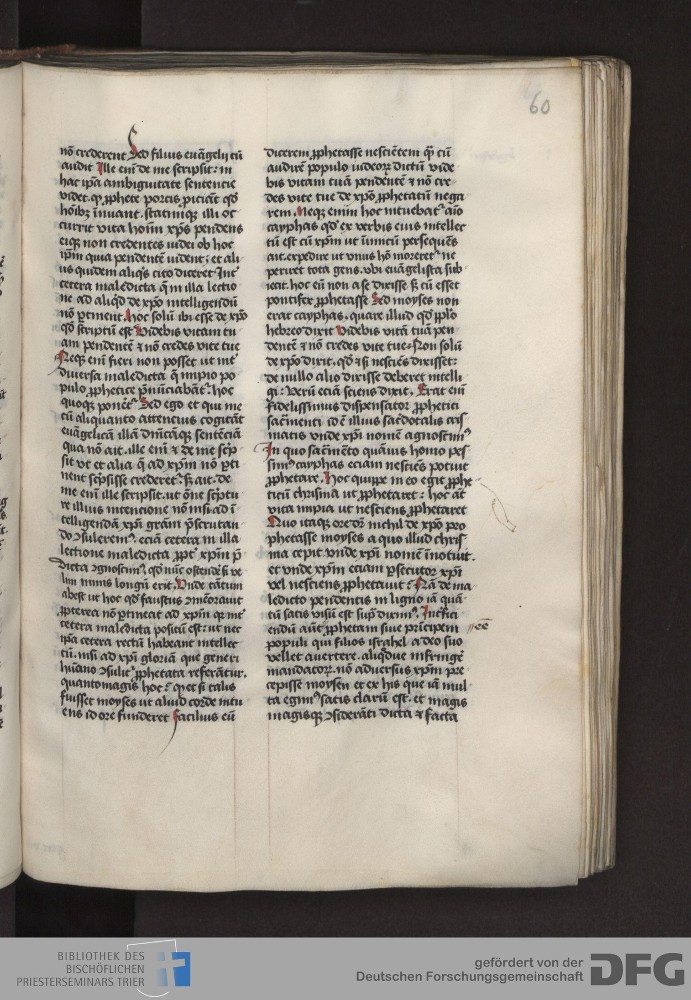 60
nō crederent Sed filius euāgelij cū
audit Ille em̄ de me scripsit: in
hac ip̄a ambiguitate sentencie
videt. qͥ ꝓphete portis piciāt qd̄
hoīb; inuant. statimq; illi oc
currit vita hom̄ xp̄s pendens
eiq; non credentes iudei ob hoc
ip̄m quia pendentē vident; et ali
us quidem aliqͥs cito diceret Int̾
cetera maledicta q̄ in illa lectio
ne ad aliqd̄ de xp̄o intelligendū
nō ꝑtinent. hoc solū ibi esse de xp̄o
qd̄ scriptū est Videbis vitam tu
am pendentē ⁊ nō credes vite tue
Neq; em̄ fieri non posset ut int̾
diuersa maledicta q̄ impio po
pulo ꝓphetice p̄nūciabāt̾. hoc
quoq; ponet̾ Sed ego et qui me
cū aliquanto attencius cogitāt
euāgelicā illā dn̄icāq; sentēciā
qua nō ait. ille em̄ ⁊ de me sc̄p
sit vt et alia q̄ ad xp̄m nō ꝑti
nent scp̄sisse crederet̾. s; ait. de
me em̄ ille scripsit. ut om̄e scp̄tu
re illius intencione nō nisi ad ī
telligendā xp̄i grām p̄scrutan
do ꝯsulerem⁹. eciā cetera in illa
lectione maledicta ꝓpt̾ xp̄m p̄
dicta ꝯgnoscim⁹. qd̄ nūc ostende̾ si ve
lim nimis longū erit. Vnde tātum
abest ut hoc qd̄ faustus ꝯmēorauit
ꝓpterea nō ꝑtineat ad xp̄m qꝛ int̾
cetera maledicta positū est: ut nec
ip̄a cetera rectū habeant intellec
tū. nisi ad xp̄i gloriā que generi
hūano ꝯsulit ꝓphetata referāt̾ur.
quantomagis hoc: qꝛ et si talis
fuisset moyses ut aliud corde intu
ens id ore funderet facilius eū
dicerem ꝓphetasse nesciētem qͣꝫ cū
audirē populo iudeoꝝ dictū vide
bis vitam tuā pendentē ⁊ nō cre
des vite tue de xp̄o ꝓphetatū nega
rem. Neq; enim hoc intuebat̾ aīo
cayphas qd̄ ex verbis eius intellec
tū est cū xp̄m ut inimicū perseques
ait. expedire ut vnus hō moreret̾ ne
periret tota gens. vbi euāgelista sub
iecit. hoc eū non a se dixisse s; cū esset
pontifex ꝓphetasse Sed moyses non
erat cayphas. quare illud qd̄ ꝓplo
hebreo dixit videbis vitā tuā pen
dentē ⁊ nō credes vite tue. Non solū
de xp̄o dixit. qd̄ ⁊ si nesciēs dixisset:
de nullo alio dixisse deberet intelli
gi: Verū eciā sciens dixit. Erat em̄
fidelissimus dispensator ꝓphetici
sac̄menti id ē illius sac̾dotalis cris
matis vnde xp̄i nomē agnoscim⁹
In quo sac̄mēto quāuis homo pes
sim⁹ cayphas eciam nesciēs potuit
ꝓphetare. Hoc quippe in eo egit ꝓphe
ticū chrisma ut ꝓphetaret: hoc at̾
vita impia ut nesciens ꝓphetaret
Quo itaq; ore dr̄ nichil de xp̄o ꝓo
phetasse moyses a quo illud chris
ma cepit vnde xp̄i nomē īnotuit.
et vnde xp̄m eciam ꝑsecutor xp̄i
vel nesciens ꝓphetauit: Nā de ma
ledicto pendentis in ligno iā quā
tū satis visū est sup̄ dixim⁹. Int̾fici
endū aūt ꝓphetam siue p̄ncipem //eē
populi qui filios isrl̄ahel a deo suo
vellet auertere. aliqd̄ue infring̾e
mandatoꝝ. nō aduersus xp̄m p̄re
cepisse moysen et ex his que iā mul
ta egim⁹ satis clarū est. et magis
magisq; ꝯsiderāti dicta ⁊ facta
BIBLIOTHEK DES
BISCHÖFLICHEN
PRIESTERSEMINARS TRIER
gefördert von der
Deutschen Forschungsgemeinschaft
DFG